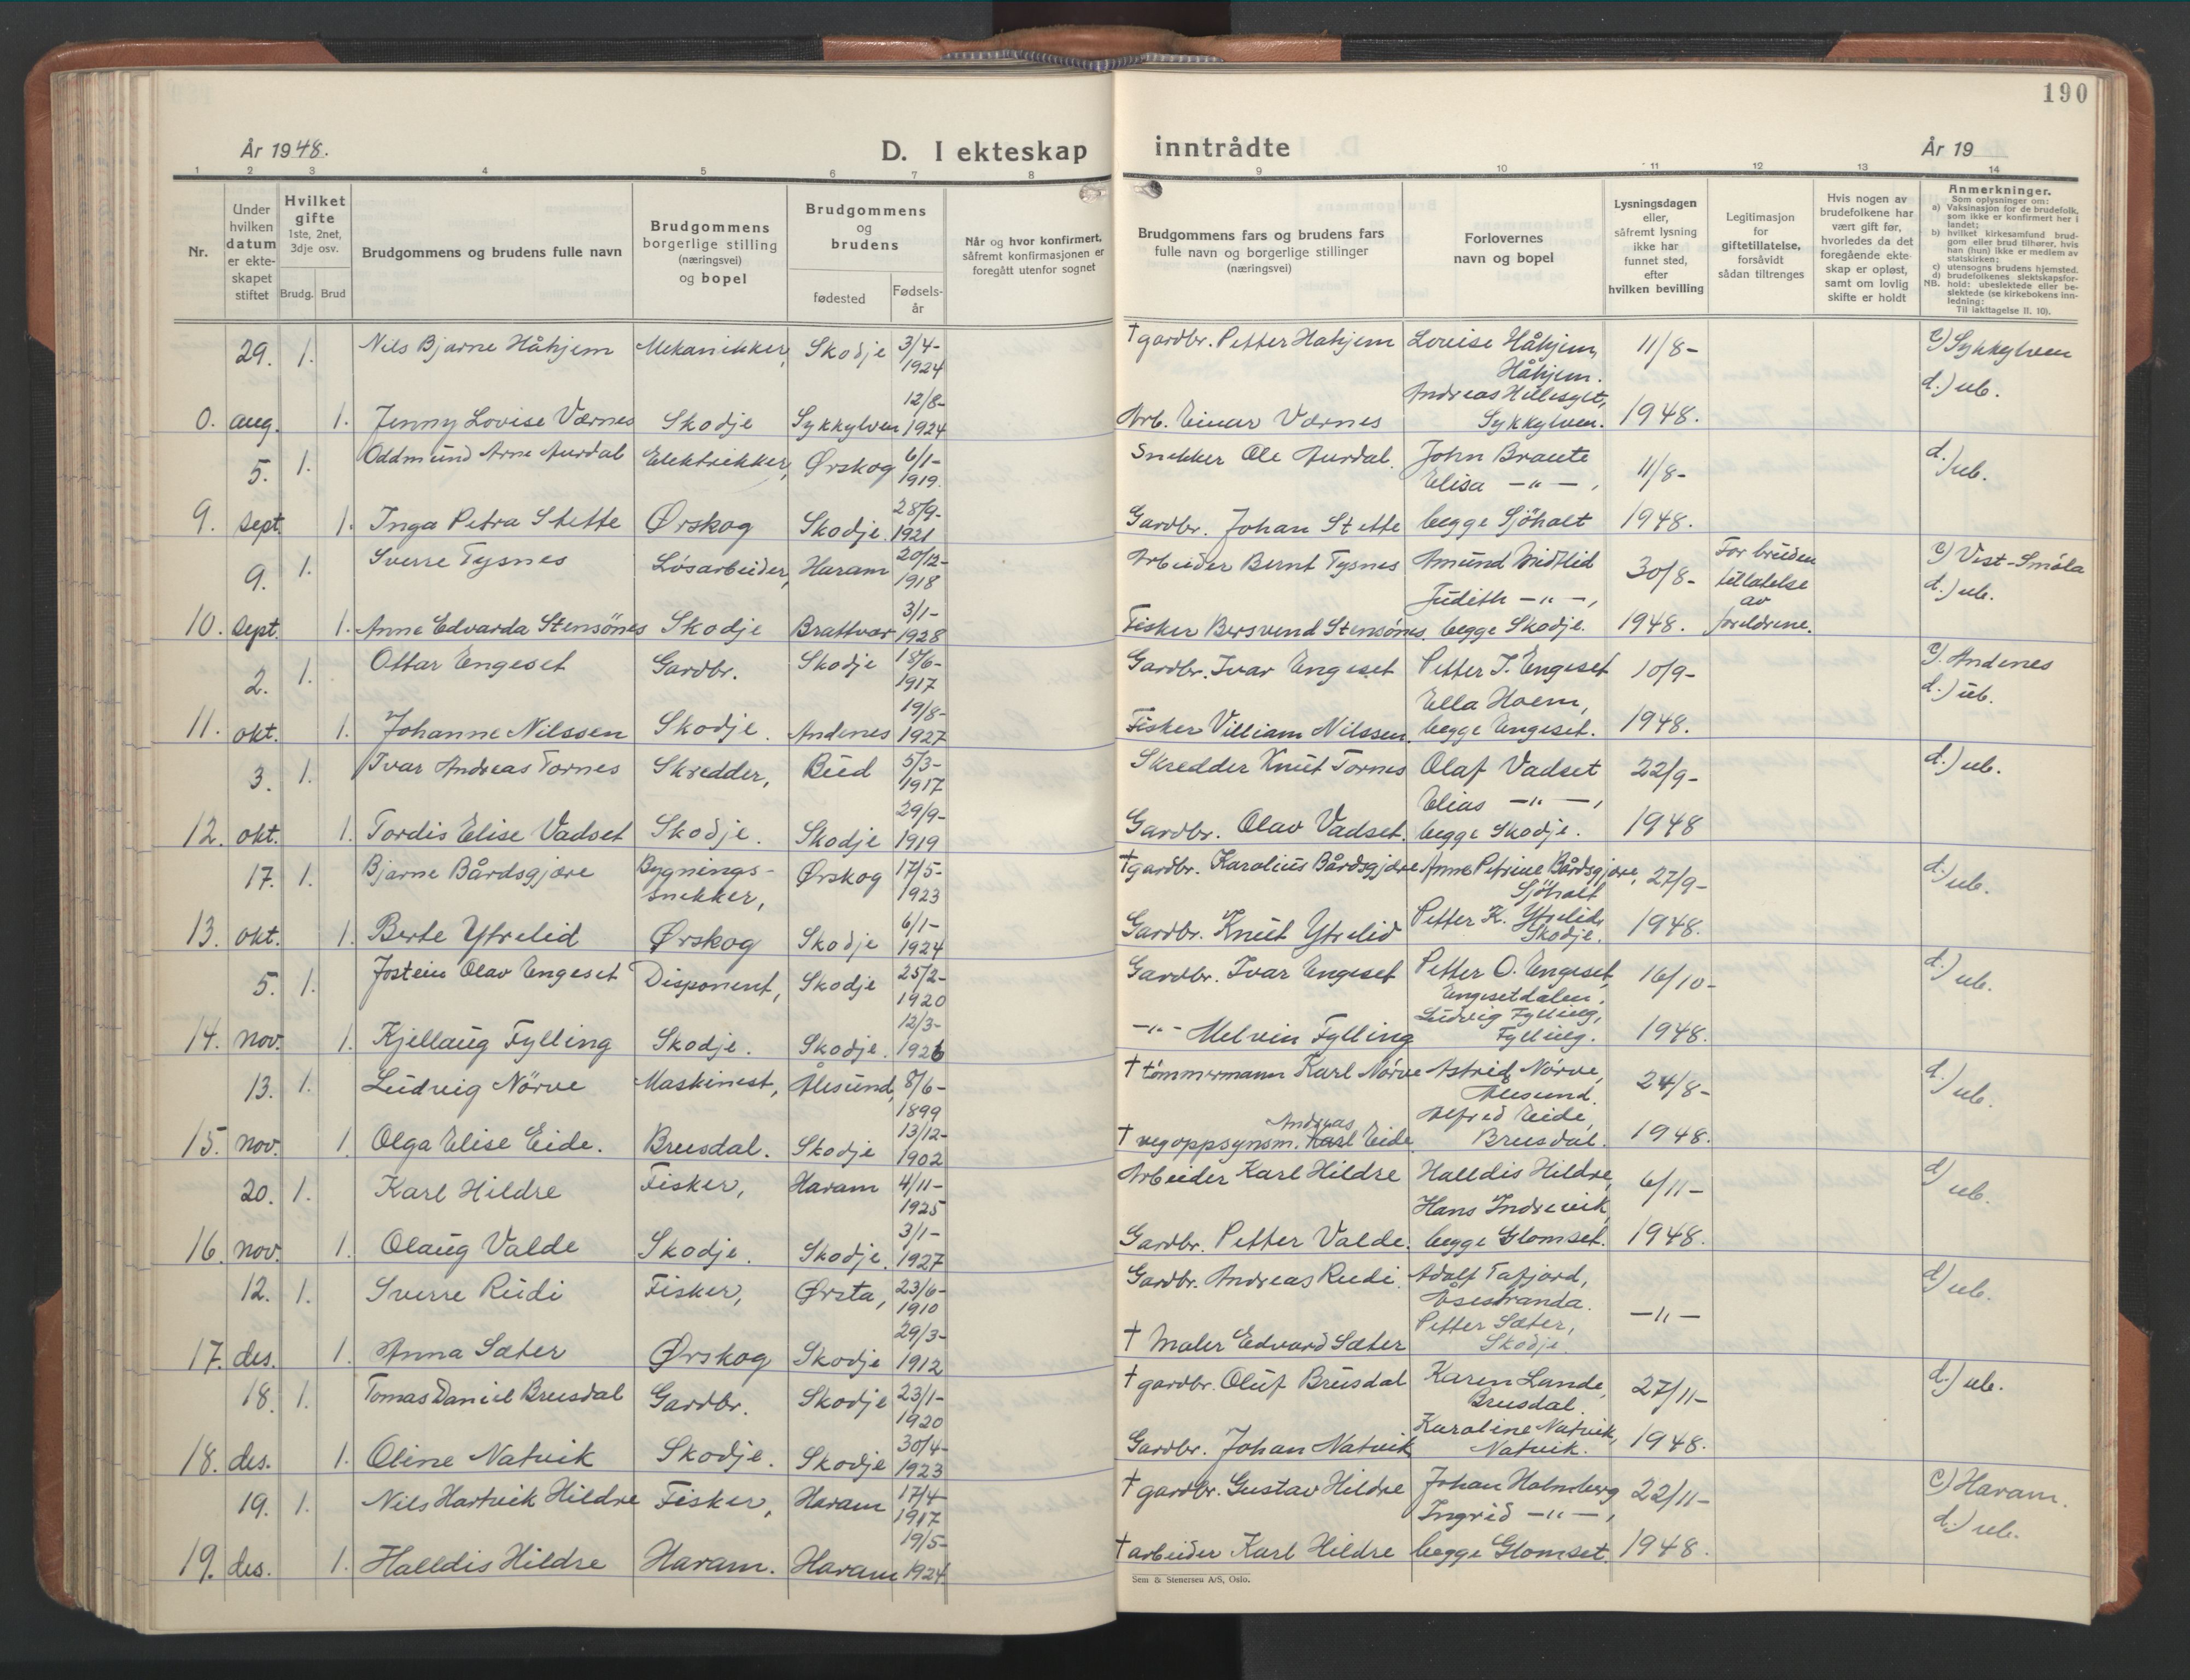 190
År 1948.
D. I ekteskap inntrådte
År 19
1 2 3 4 5 6 7 8 9 10 11 12 13 14
Nr.
Under hvilken datum er ekteskapet stiftet
Hvilket gifte 1ste, 2net, 3dje osv.
Brudg. Brud
Brudgommens og brudens fulle navn
Brudgommens borgerlige stilling (næringsvei) og bopel
Brudgommens og brudens
fødested
Fødsels-år
Når og hvor konfirmert, såfremt konfirmasjonen er foregått utenfor sognet
Brudgommens fars og brudens fars fulle navn og borgerlige stillinger (næringsvei)
Forlovernes navn og bopel
Lysningsdagen eller, såfremt lysning ikke har funnet sted, efter hvilken bevilling
Legitimasjon for giftetillatelse, forsåvidt sådan tiltrenges
Hvis nogen av brudefolkene har vært gift før, hvorledes da det foregående ekteskap er opløst, samt om lovlig skifte er holdt
Anmerkninger.
Som oplysninger om:
a) Vaksinasjon for de brudefolk, som ikke er konfirmert her i landet;
b) hvilket kirkesamfund brudgom eller brud tilhører, hvis han (hun) ikke er medlem av statskirken;
c) utensogns brudens hjemsted.
d) brudefolkenes slektskapsforhold: ubeslektede eller beslektede (se kirkebokens innledning:
NB.
Til iakttagelse II. 10).
29. 1. Nils Bjarne Håhjem Mekanikker, Skodje 3/4-1924 † gardbr. Petter Hahjem Lovise Håhjem, Håhjem. 11/8- c) Sykkylven d.) ub.
0. aug. 1. Jenny Lovise Værnes Skodje Sykkylven 12/8-1924 Arb. Einar Værnes Andreas Hillesgt, Sykkylven. 1948.
5. 1. Oddmund Arne Aurdal Elektrikker, Ørskog 6/1-1919. Snekker Ole Aurdal. John Braute 11/8- d.) ub.
Elisa —"—,
9. sept. 1. Inga Petra Stette Ørskog Skodje. 28/9-1921 Gardbr. Johan Stette begge Sjöholt 1948.
9. 1. Sverre Tysnes Løsarbeider, Haram 20/12-1918 Arbeider Bernt Tysnes Amund Midtlid 30/8- For bruden tillatelse av foreldrene. c) Vest-Smøla d.) ub.
Judith —"—,
10. sept. 1. Anne Edvarda Stensönes Skodje Brattvær 3/1-1928 Fisker Bersvend Stensönes. begge Skodje. 1948.
2. 1. Ottar Engeset Gardbr. Skodje 18/6-1917 Gardbr. Ivar Engeset Petter I. Engeset 10/9- c). Andenes d.) ub.
Ella Hoem,
11. okt. 1. Johanne Nilssen Skodje. Andenes 19/8-1927 Fisker Villiam Nilssen. begge Engeset. 1948.
3. 1. Ivar Andreas Tornes Skredder, Bud 5/3-1917 Skredder Knut Tornes Olaf Vadset 22/9- d.) ub.
Elias —"—,
12. okt. 1. Tordis Elise Vadset Skodje. Skodje 29/9-1919 Gardbr. Olav Vadset. begge Skodje. 1948
17. 1. Bjarne Bårdsgjære Bygnings-snekker, Ørskog 17/5-1923 † gardbr. Karolius Bårdsgjære Anne Petrine Bårdsgjære, Sjöholt 27/9- d.) ub.
13. okt. 1. Berte Ytrelid Ørskog Skodje 6/1-1924 Gardbr. Knut Ytrelid Petter K. Ytrelid, Skodje. 1948.
5. 1. Jostein Olav Engeset Disponent, Skodje 25/2-1920 Gardbr. Ivar Engeset Petter O. Engeset, Engesetdalen. 16/10- d.) ub.
14. nov. 1. Kjellaug Fylling Skodje. Skodje. 12/3-1926 —"— Melvin Fylling Ludvig Fylling, Fylling. 1948.
13. 1. Ludvig Nörve Maskinest, Ålesund, 8/6-1899 † tömmermann Karl Nörve Astrid Nörve, Ålesund. 24/8- d.) ub.
15. nov. 1. Olga Elise Eide. Brusdal. Skodje 13/12-1902 † vegoppsynsm. Karl Andreas Eide. Alfred Eide, Brusdal. 1948.
20. 1. Karl Hildre Fisker, Haram 4/11-1925 Arbeider Karl Hildre Halldis Hildre, 6/11- d) ub.
Hans Indrevik,
16. nov. 1. Olaug Valde Skodje. Skodje. 3/1-1927 Gardbr. Petter Valde. begge Glomset. 1948.
12. 1. Sverre Rudi Fisker, Ørsta, 23/6-1910 Gardbr. Andreas Rudi. Adolf Tafjord, Åsestranda. —"— d) ub.
17. des. 1. Anna Sæter Ørskog Skodje 29/3-1912 † Maler Edvard Sæter Petter Sæter, Skodje.
18. 1. Tomas Daniel Brusdal Gardbr. Skodje 23/1-1920 † gardbr. Oluf Brusdal Karen Lande, Brusdal. 27/11- d.) ub.
18. des. 1. Oline Natvik Skodje. Skodje 30/4-1923 Gardbr. Johan Natvik Karoline Natvik, Natvik. 1948.
19. 1. Nils Hartvik Hildre Fisker, Haram 17/4-1917 † gardbr. Gustav Hildre Johan Holmberg 22/11- c) Haram. d.) ub.
Ingrid —"—,
19. des. 1. Halldis Hildre Haram. Haram 19/5-1924 † arbeider Karl Hildre begge Glomset. 1948.
Sem & Stenersen A/S, Oslo.